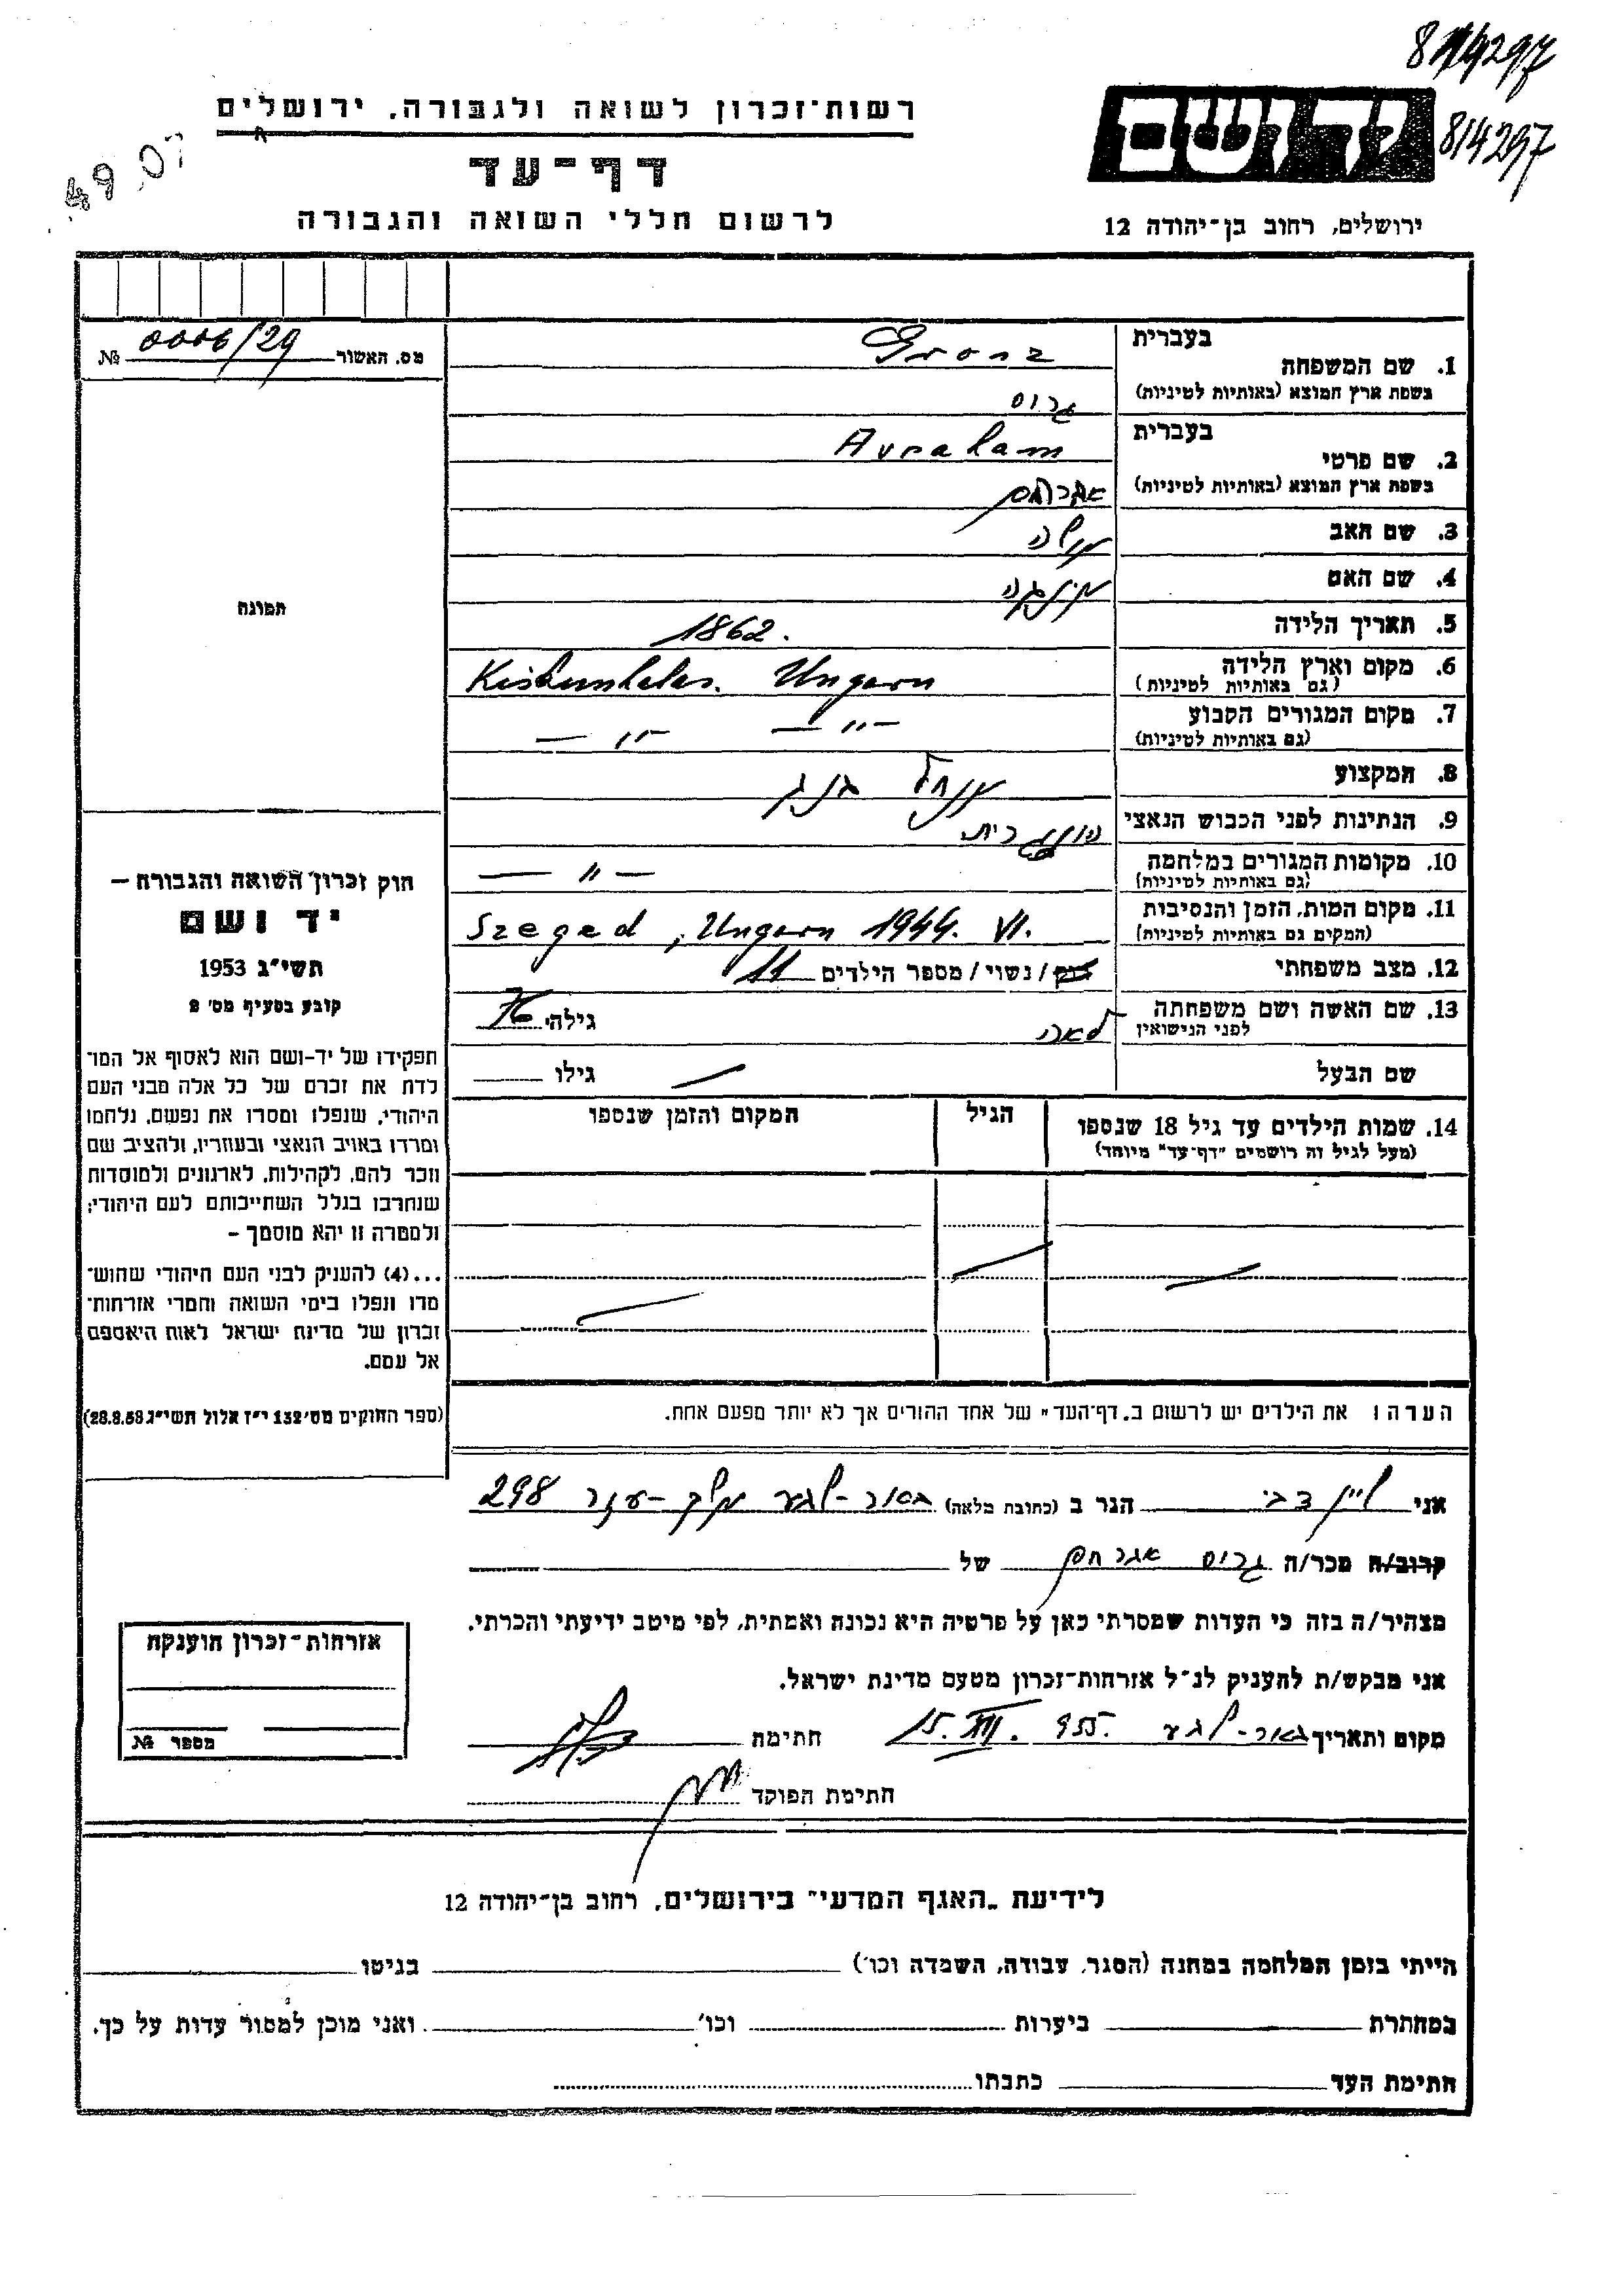 8114297
814297
49.07
רשות־זכרון לשואה ולגבורה, ירושלים
דף־עד
לרשום חללי השואה והגבורה
יד ושם
ירושלים, רחוב בן־יהודה 12
מס. האשור 0006/29 №
בעברית
1. שם המשפחה Grosz
בשפת ארץ המוצא (באותיות לטיניות) גרוס
בעברית
2. שם פרטי Avraham
בשפת ארץ המוצא (באותיות לטיניות) אברהם
3. שם האב משה
4. שם האם
5. תאריך הלידה 1862.
6. מקום וארץ הלידה Kiskunhalas. Ungarn
(גם באותיות לטיניות)
7. מקום המגורים הקבוע — " — — " —
(גם באותיות לטיניות)
8. המקצוע מנהל בנק
9. הנתינות לפני הכבוש הנאצי הונגרית
10. מקומות המגורים במלחמה — " —
(גם באותיות לטיניות)
11. מקום המות, הזמן והנסיבות Szeged, Ungarn 1944. VI.
(המקום גם באותיות לטיניות)
12. מצב משפחתי רווק / נשוי / מספר הילדים 11
13. שם האשה ושם משפחתה גילה 76
לפני הנישואין
שם הבעל גילו
14. שמות הילדים עד גיל 18 שנספו הגיל המקום והזמן שנספו
(מעל לגיל זה רושמים "דף־עד" מיוחד)
תמונה
חוק זכרון השואה והגבורה –
יד ושם
תשי"ג 1953
קובע בסעיף מס' 2
תפקידו של יד-ושם הוא לאסוף אל המו־
לדת את זכרם של כל אלה מבני העם
היהודי, שנפלו ומסרו את נפשם, נלחמו
ומרדו באויב הנאצי ובעוזריו, ולהציב שם
וזכר להם, לקהילות, לארגונים ולמוסדות
שנחרבו בגלל השתייכותם לעם היהודי;
ולמטרה זו יהא מוסמך –
...(4) להעניק לבני העם היהודי שהוש־
מדו ונפלו בימי השואה והמרי אזרחות־
זכרון של מדינת ישראל לאות היאספם
אל עמם.
(ספר החוקים מס' 132 י"ז אלול תשי"ג 28.8.53)
הערה: את הילדים יש לרשום ב"דף־העד" של אחד ההורים אך לא יותר מפעם אחת.
אני צבי הגר ב (כתובת מלאה) באר-שבע 298
קרוב/ה מכר/ה גרוס אברהם של
מצהיר/ה בזה כי העדות שמסרתי כאן על פרטיה היא נכונה ואמתית, לפי מיטב ידיעתי והכרתי.
אני מבקש/ת להעניק לנ"ל אזרחות־זכרון מטעם מדינת ישראל.
מקום ותאריך באר-שבע 15. XII. 955. חתימת
חתימת הפוקד
אזרחות־זכרון הוענקה
מספר №
לידיעת "האגף המדעי" בירושלים, רחוב בן־יהודה 12
הייתי בזמן המלחמה במחנה (הסגר, עבודה, השמדה וכו') בגיטו
במחתרת ביערות וכו' ואני מוכן למסור עדות על כך.
חתימת העד כתבתו